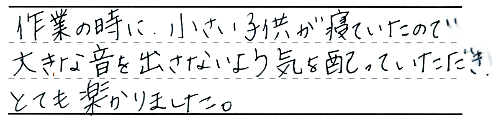 作業の時に、小さい子供が寝ていたので
大きな音を出さないよう気を配っていただき、
とても楽かりました。